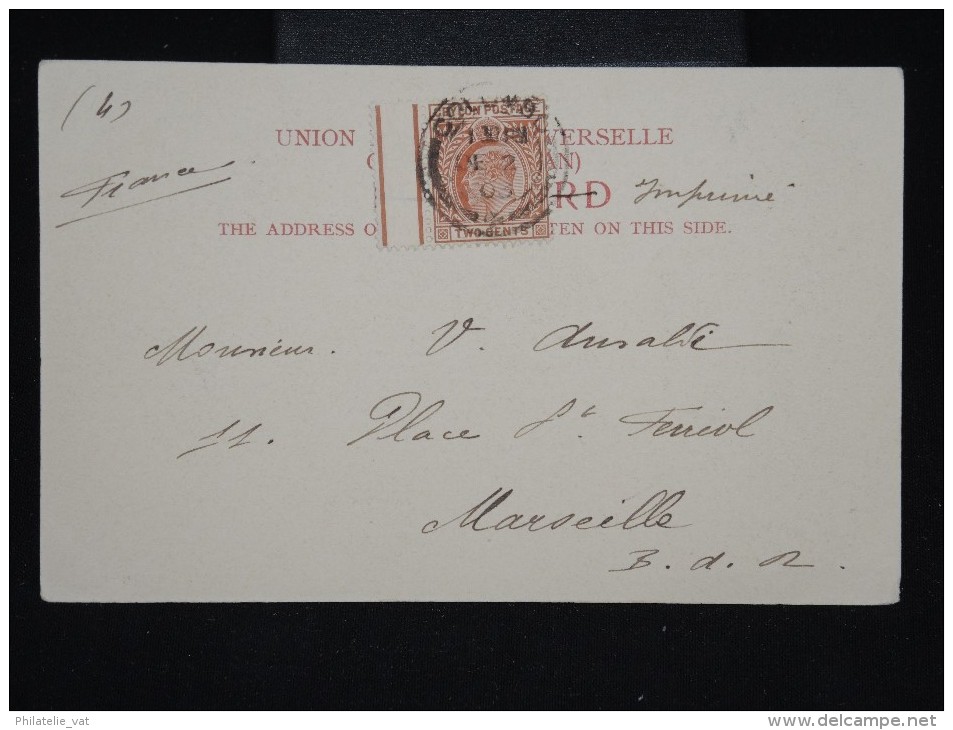 (4)
UNION VERSELLE
AN)
France
RD Imprimé
THE ADDRESS O TEN ON THIS SIDE.
CEYLON POSTAGE
COLOMBO
TWO CENTS
Monsieur. V. Ansaldi
11. Place St Ferréol
Marseille
B. d. R.
Philatelie_vat
www.delcampe.net